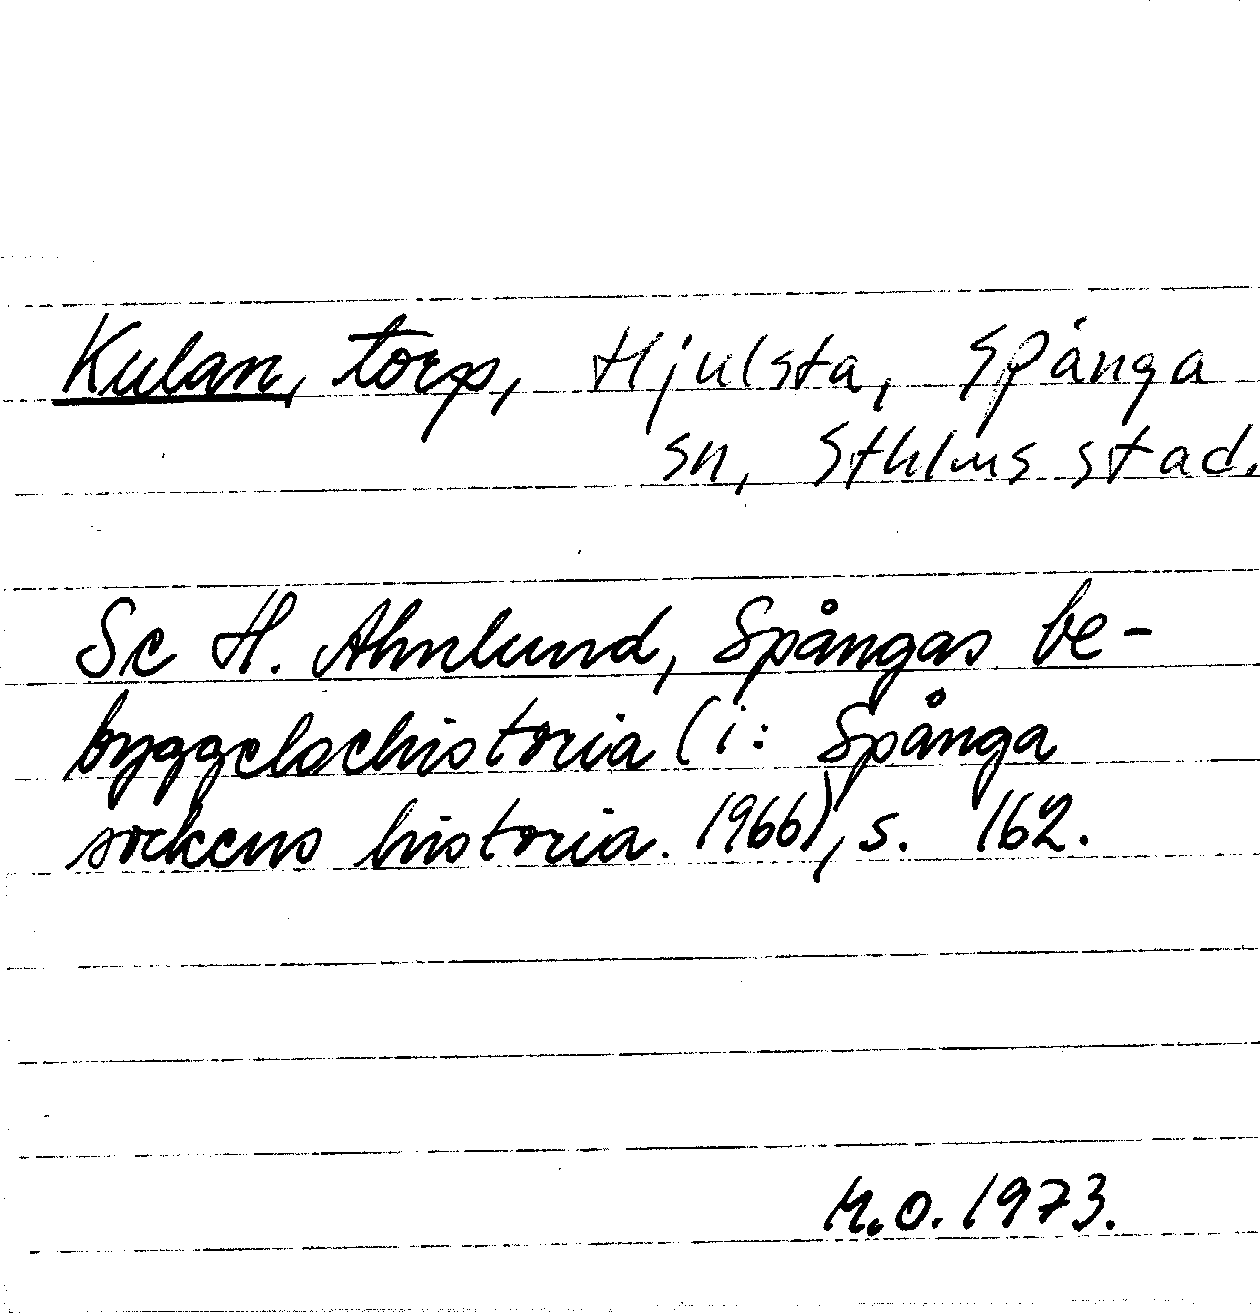 Kulan, torp, Hjulsta, Spånga
sn, Sthlms stad.
Se H. Ahnlund, Spångas be-
byggelsehistoria (i: Spånga
sockens historia. 1966), s. 162.
M.O. 1973.